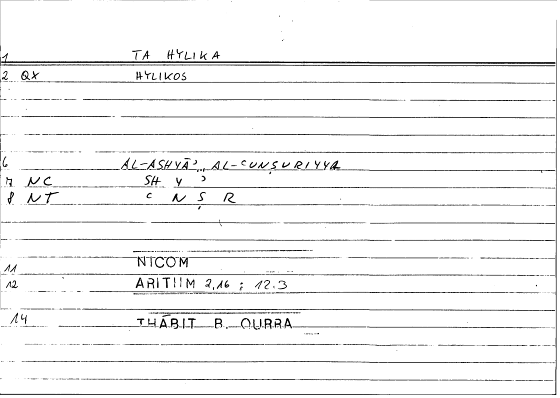 1 TA HYLIKA
2 QX HYLIKOS
6 AL-ASHYĀʾ, AL-ʿUNṢURIYYA
7 NC SH Y ʾ
8 NT ʿ N Ṣ R
11 NICOM
12 ARITIIM 2,16 ; 12.3
14 THĀBIT B. QURRA